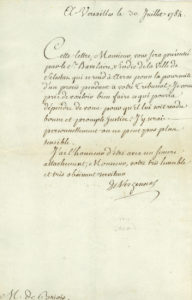 A Versailles le 30 Juillet 1784.
Cette lettre, Monsieur, vous sera présentée
par le Sr. Syndic de la Ville de
qui se rend à pour la poursuite
d'un procès pendant à votre Tribunal. Je vous
prie de vouloir bien faire ce qui pourra
dépendre de vous pour qu'il lui soit rendu
bonne et prompte Justice. J'y serai
personnellement on ne peut pas plus
sensible.
J'ai l'honneur d'être avec un sincère
attachement, Monsieur, votre très humble
et très obéissant serviteur
De Vergennes
M. de